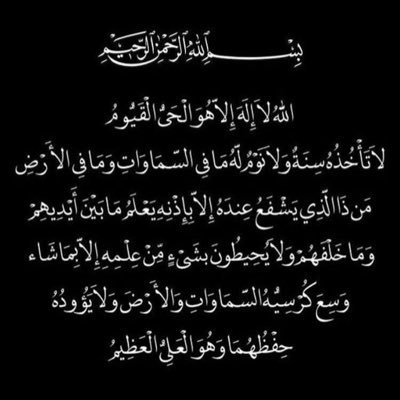 بِسْمِ اللهِ الرَّحْمٰنِ الرَّحِيْمِ
اللهُ لاَ إِلَهَ إِلاَّ هُوَ الْحَيُّ الْقَيُّومُ
لاَ تَأْخُذُهُ سِنَةٌ وَلاَ نَوْمٌ لَهُ مَا فِي السَّمَاوَاتِ وَمَا فِي الأَرْضِ
مَن ذَا الَّذِي يَشْفَعُ عِنْدَهُ إِلاَّ بِإِذْنِهِ يَعْلَمُ مَا بَيْنَ أَيْدِيهِمْ
وَمَا خَلْفَهُمْ وَلاَ يُحِيطُونَ بِشَيْءٍ مِّنْ عِلْمِهِ إِلاَّ بِمَا شَاء
وَسِعَ كُرْسِيُّهُ السَّمَاوَاتِ وَالأَرْضَ وَلاَ يَؤُودُهُ
حِفْظُهُمَا وَهُوَ الْعَلِيُّ الْعَظِيمُ